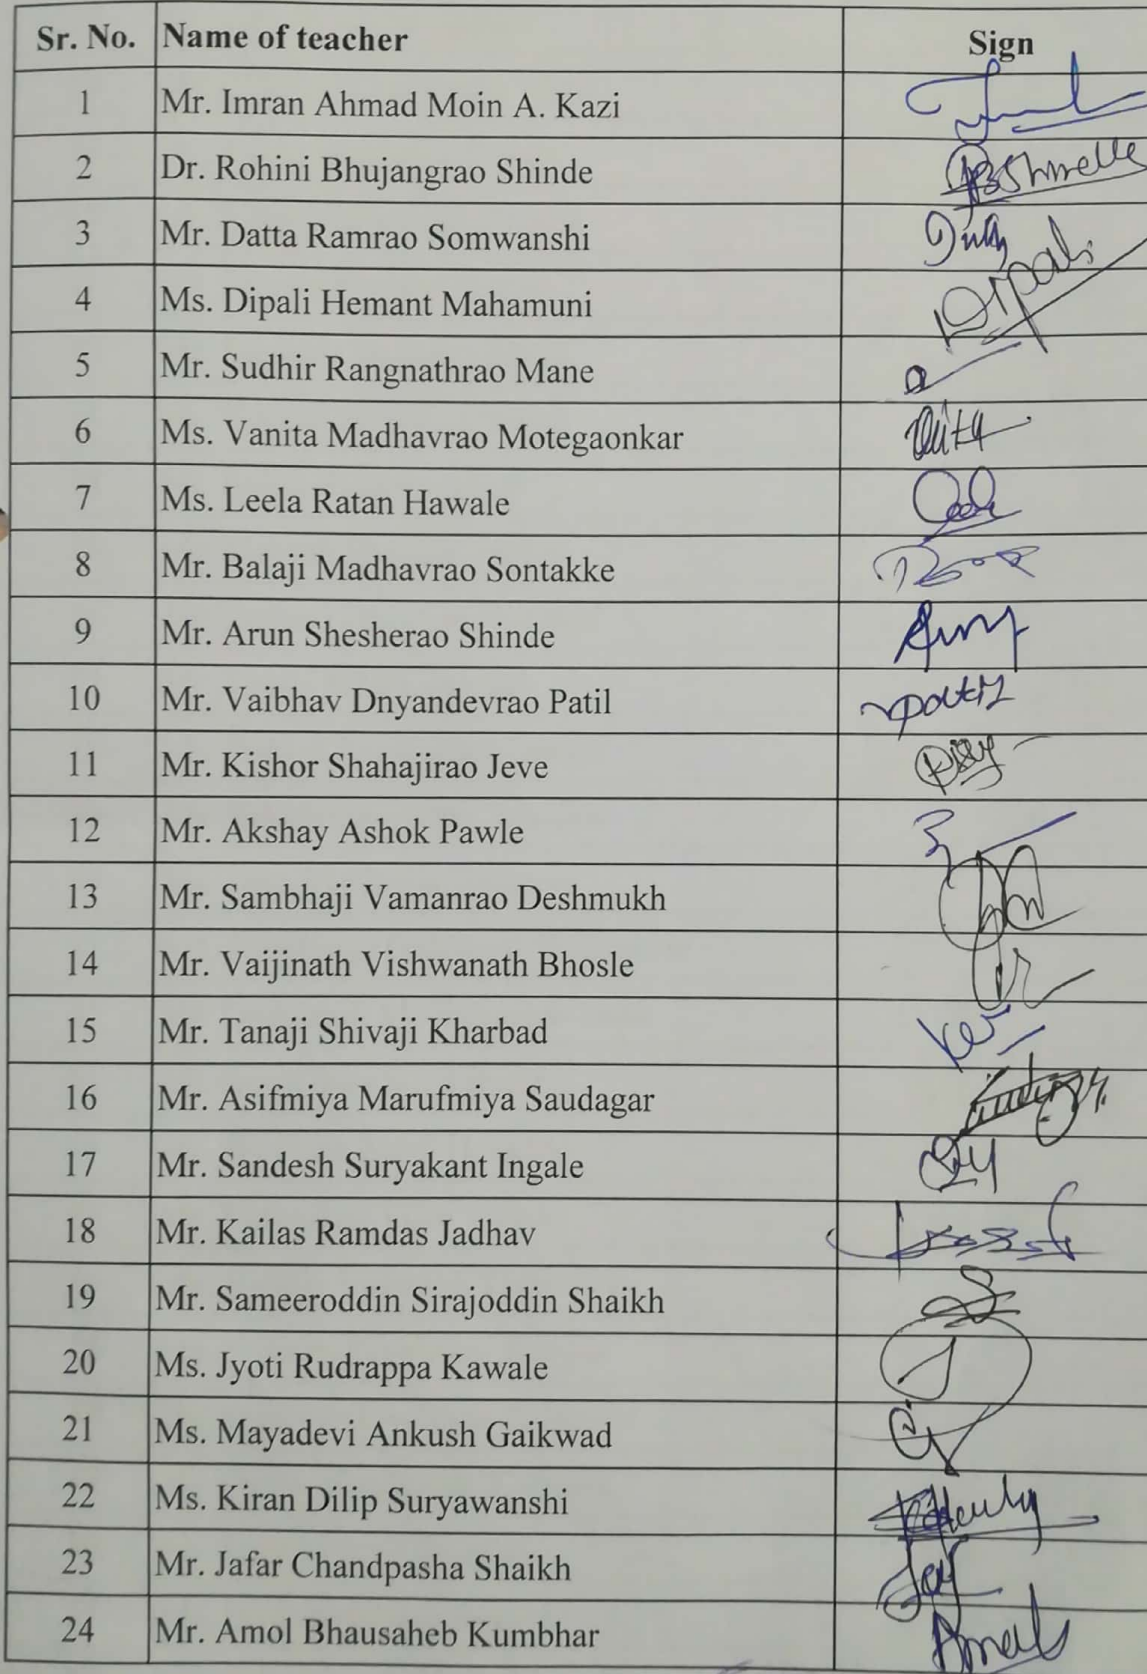 Sr. No. Name of teacher Sign
1 Mr. Imran Ahmad Moin A. Kazi
2 Dr. Rohini Bhujangrao Shinde RBShinde
3 Mr. Datta Ramrao Somwanshi
4 Ms. Dipali Hemant Mahamuni Dipali
5 Mr. Sudhir Rangnathrao Mane
6 Ms. Vanita Madhavrao Motegaonkar
7 Ms. Leela Ratan Hawale
8 Mr. Balaji Madhavrao Sontakke
9 Mr. Arun Shesherao Shinde
10 Mr. Vaibhav Dnyandevrao Patil Patil
11 Mr. Kishor Shahajirao Jeve
12 Mr. Akshay Ashok Pawle
13 Mr. Sambhaji Vamanrao Deshmukh
14 Mr. Vaijinath Vishwanath Bhosle
15 Mr. Tanaji Shivaji Kharbad
16 Mr. Asifmiya Marufmiya Saudagar
17 Mr. Sandesh Suryakant Ingale
18 Mr. Kailas Ramdas Jadhav
19 Mr. Sameeroddin Sirajoddin Shaikh
20 Ms. Jyoti Rudrappa Kawale
21 Ms. Mayadevi Ankush Gaikwad
22 Ms. Kiran Dilip Suryawanshi
23 Mr. Jafar Chandpasha Shaikh
24 Mr. Amol Bhausaheb Kumbhar